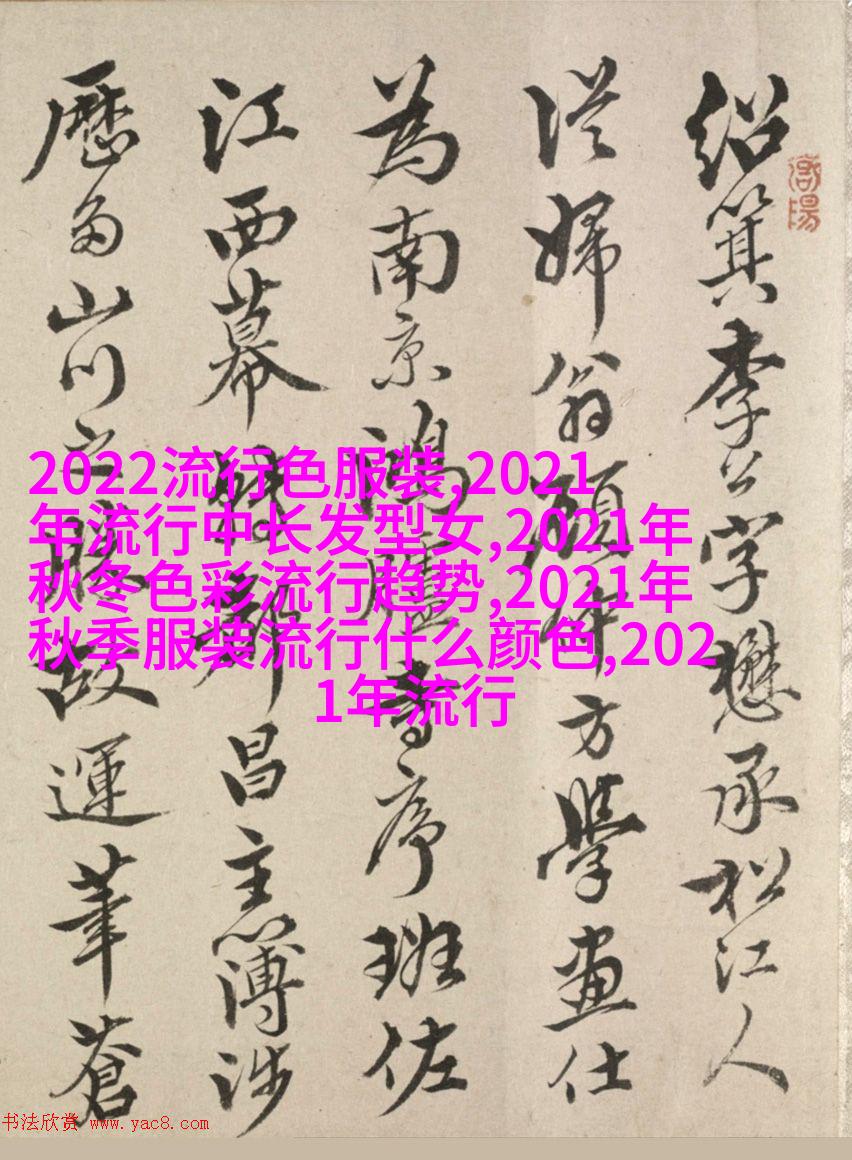 紹箕李公字懋承松江人
從婦翁顧仲方學畫仕
為南京鴻臚寺序班佐
江西幕都昌主簿涉
歷多山川之勝故運筆蒼
2022流行色服装,2021
年流行中长发型女,2021年
秋冬色彩流行趋势,2021年
秋季服装流行什么颜色,202
1年流行
书法欣赏 www.yac8.com